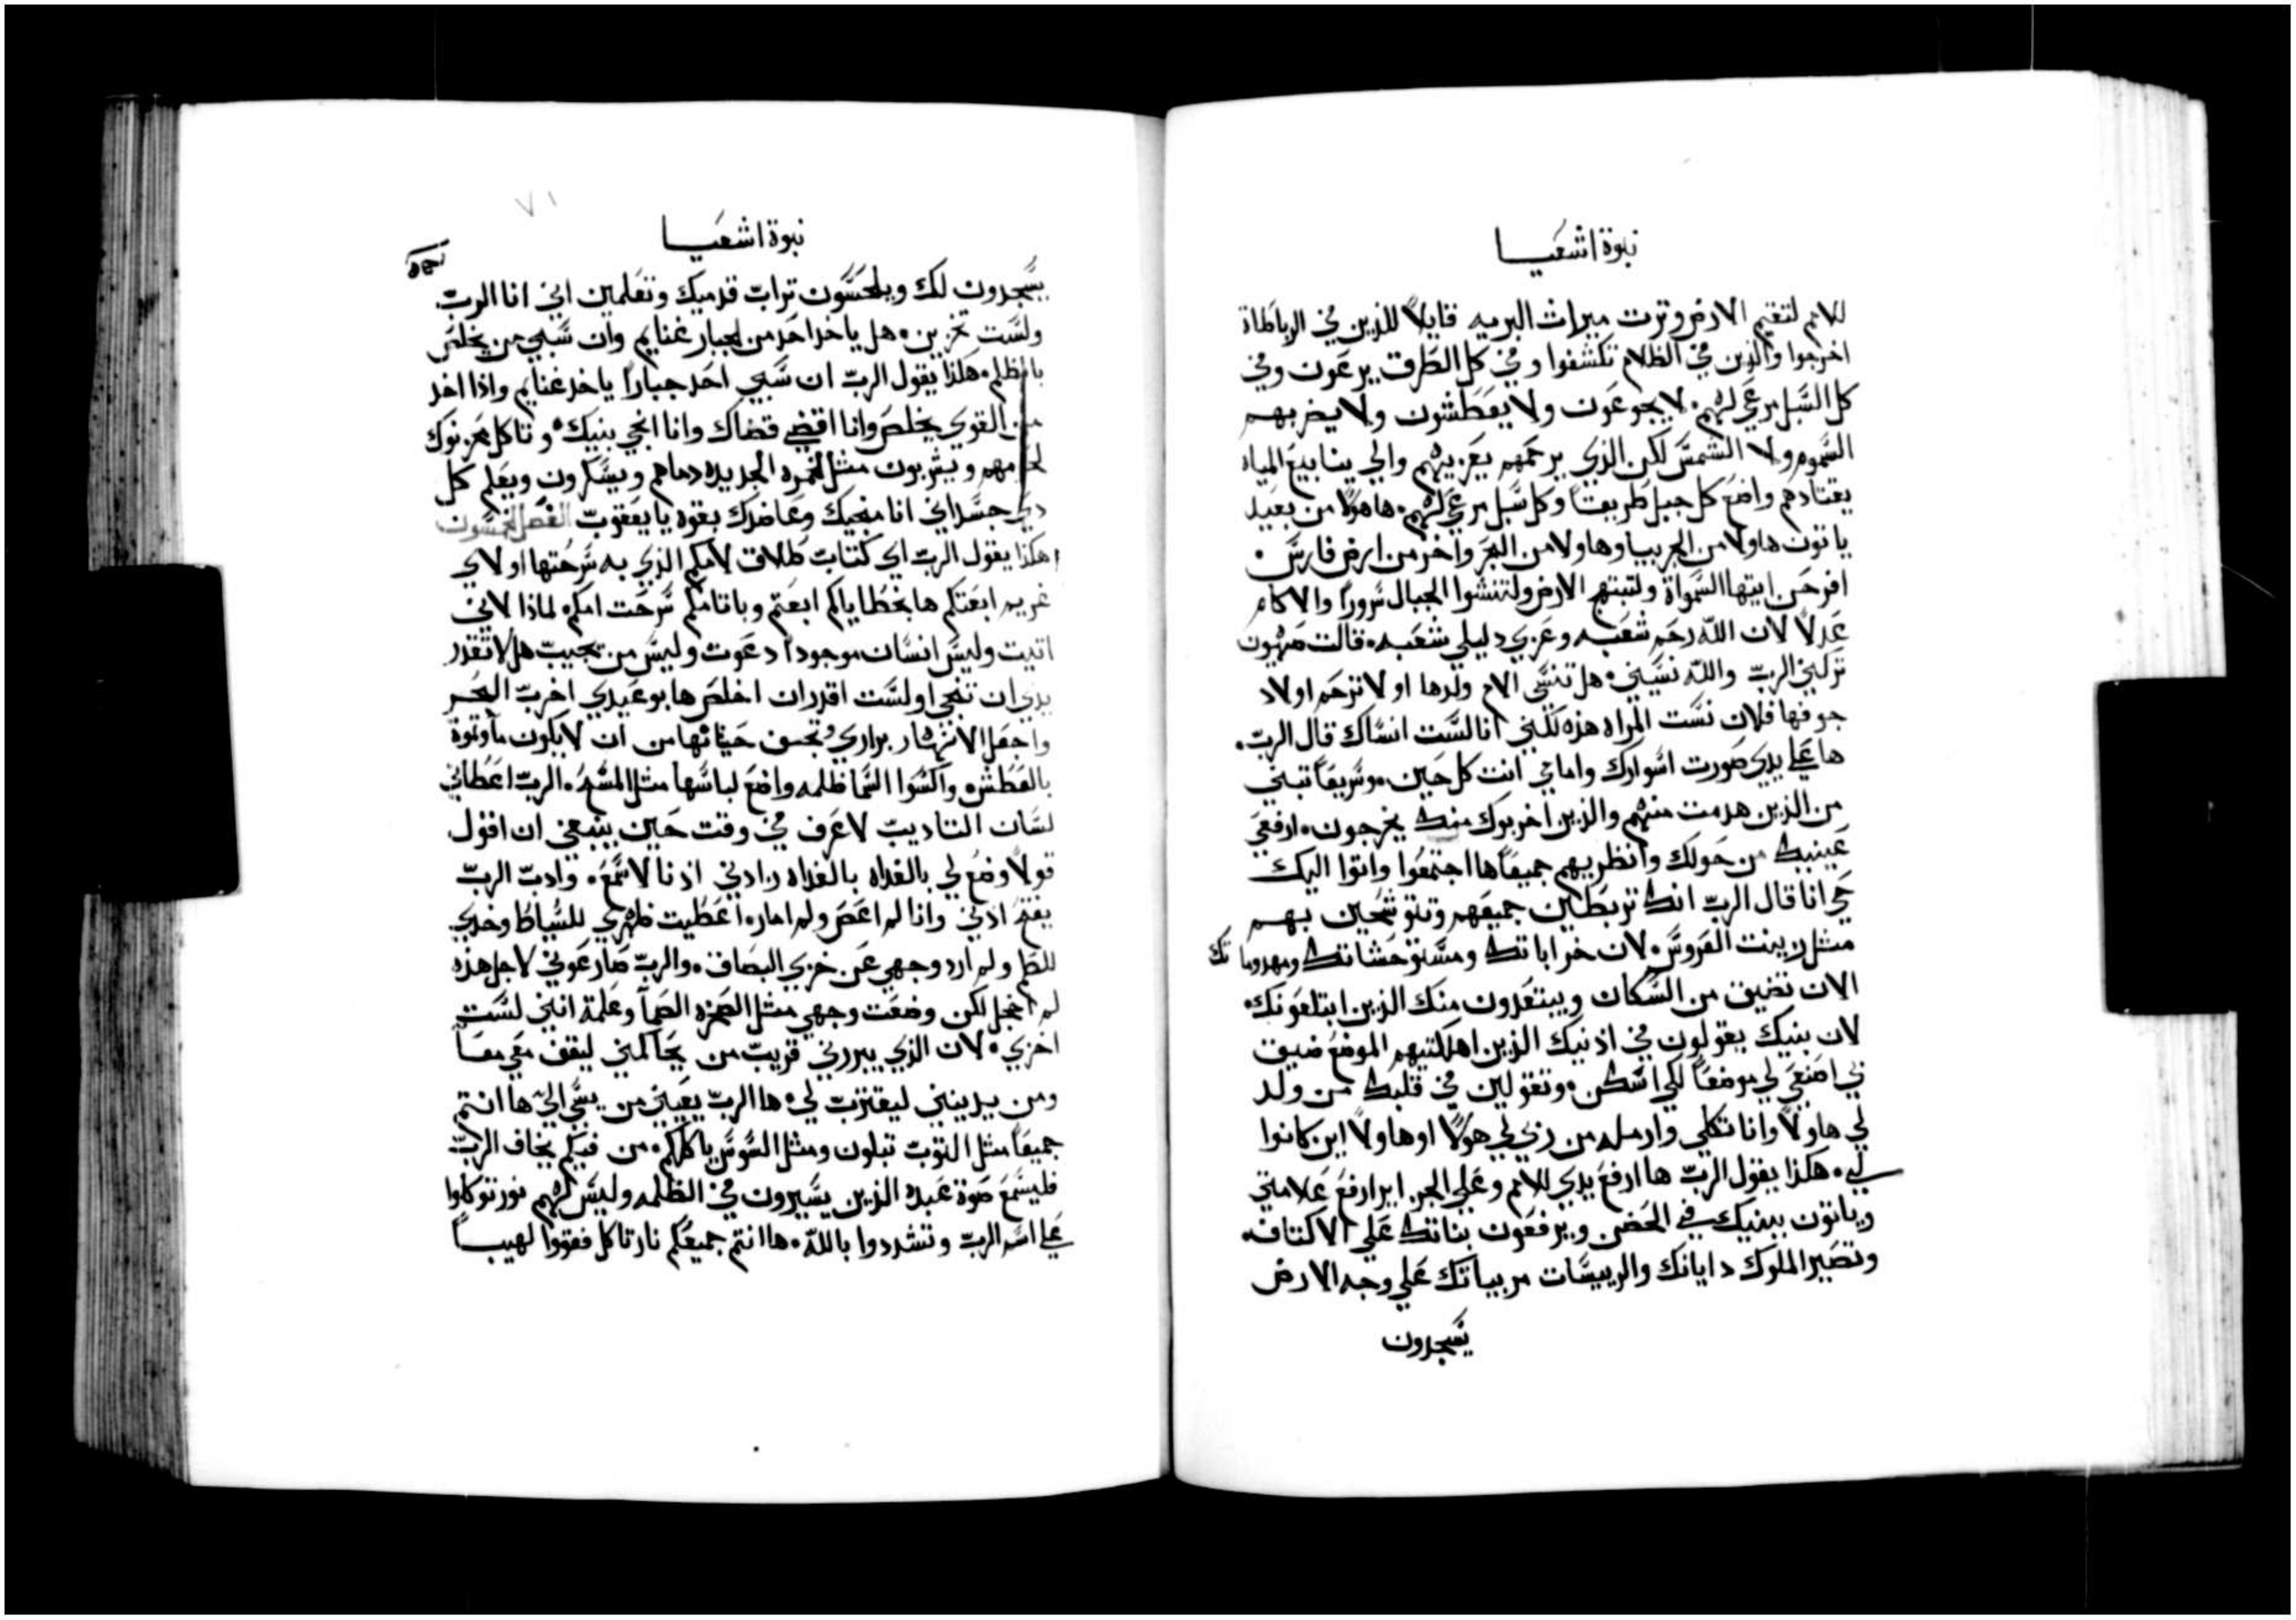 نبوة اشعيا
للامم لتقيم الارض وترت ميراث البريه قايلاً للذين في الرباطاة
اخرجوا والذين في الظلام تكشفوا وفي كل الطرق يرعون وفي
كل السبل مرعى لهم، لا يجوعون ولا يعطشون ولا يضربهم
السموم ولا الشمس لكن الذي يرحمهم يعزيهم والي ينابيع المياه
يقتادهم واضع كل جبل طريقاً وكل سبل مرعي لهم، ها هولا من بعيد
ياتون هاولا من الجربيا وهاولا من البحر واخر من ارض فارس،
افرحن ايتها السمواة ولتبتهج الارض ولتنشوا الجبال سروراً والاكام
عدلاً لان الله رحم شعبه وعزي دليلي شعبه، قالت صهيون
تركني الرب والله نسيني، هل تنسى الام ولدها او لا ترحم اولاد
جوفها فلان نست المراه هذه لكنني انا لست انساك قال الرب،
ها على يدي صورت اسوارك وامامي انت كل حين، وسريعاً تبني
من الذين هدمت منهم والذين اخربوك منك يخرجون، ارفعي
عينيك من حولك وانظريهم جميعاً ها اجتمعوا واتوا اليك
حي انا قال الرب انك تربطين جميعهم وتتوشحين بهم
مثل زينت العروس، لان خراباتك ومستوحشاتك ومهدوماتك
الان تضيق من السكان ويبتعدون منك الذين ابتلعونك،
لان بنيك يقولون في اذنيك الذين اهلكتيهم الموضع ضيق
بي اصنعي لي موضعاً لكي اسكن، وتقولين في قلبك من ولد
لي هاولاً وانا تكلي وارمله من ربي لي هولاً او هاولاً اين كانوا
لي، هكذا يقول الرب ها ارفع يدي للامم وعلي الجزاير ارفع علامتي
وياتون ببنيك في الحضن ويرفعون بناتك علي الاكتاف،
وتصير الملوك داياتك والرييسات مربياتك علي وجه الارض
يسجدون
٧١
نبوة اشعيا
يسجدون لك ويلحسون تراب قدميك وتعلمين اني انا الرب.
ولست تخزين، هل ياخد احد من الجبار غنايم وان سبي من يخلص
بالظلم، هكذا يقول الرب ان سبي احد جباراً ياخد غنايم واذا اخد
من القوي يخلص وانا اقضي قضاك وانا انجي بنيك، وتاكل محزنوك
لحومهم ويشربون مثل الخمره الجديده دماهم ويسكرون ويعلم كل
دي جسد اني انا منجيك وعاضدك بقوه يا يعقوب الفصل الخمسون
هكذا يقول الرب اي كتاب طلاق لامكم الذي به سرحتها او لاي
غريم ابعتكم ها بخطاياكم ابعتم وباثامكم سرحت امكم، لماذا لاني
اتيت وليس انسان موجوداً دعوت وليس من يجيب هل لا تقدر
يدي ان تنجي او لست اقدر ان اخلص ها بوعيدي اخرب البحر
واجعل الانهار براري وتجسف حيتانها من ان لا يكون ما وتموة
بالعطش، واكسوا السما ظلمه واضع لباسها مثل المسح، الرب اعطاني
لسان التاديب لاعرف في وقت حين ينبغي ان اقول
قولاً وضع لي بالغداه بالغداه زادني اذنا لاسمع، وادب الرب
يفتح ادني وانا لم اعص ولم امار، اعطيت ظهري للسياط وخدي
للطم ولم ارد وجهي عن خزي البصاق، والرب صار عوني لاجل هذه
لم اخجل لكن وضعت وجهي مثل الصخره الصمآ وعلمة انني لست
اخزي، لان الذي يبررني قريب من يحاكمني ليقف معي معاً
ومن يدينني ليقترب لي، ها الرب يعينني من يسي الي، ها انتم
جميعاً مثل التوب تبلون ومثل السوس ياكلهم، من فيكم يخاف الرب
فليسمع صوة عبده الذين يسيرون في الظلمه وليس لهم نور توكلوا
على اسم الرب وتشددوا بالله، ها انتم جميعكم نار تاكل فقووا لهيباً